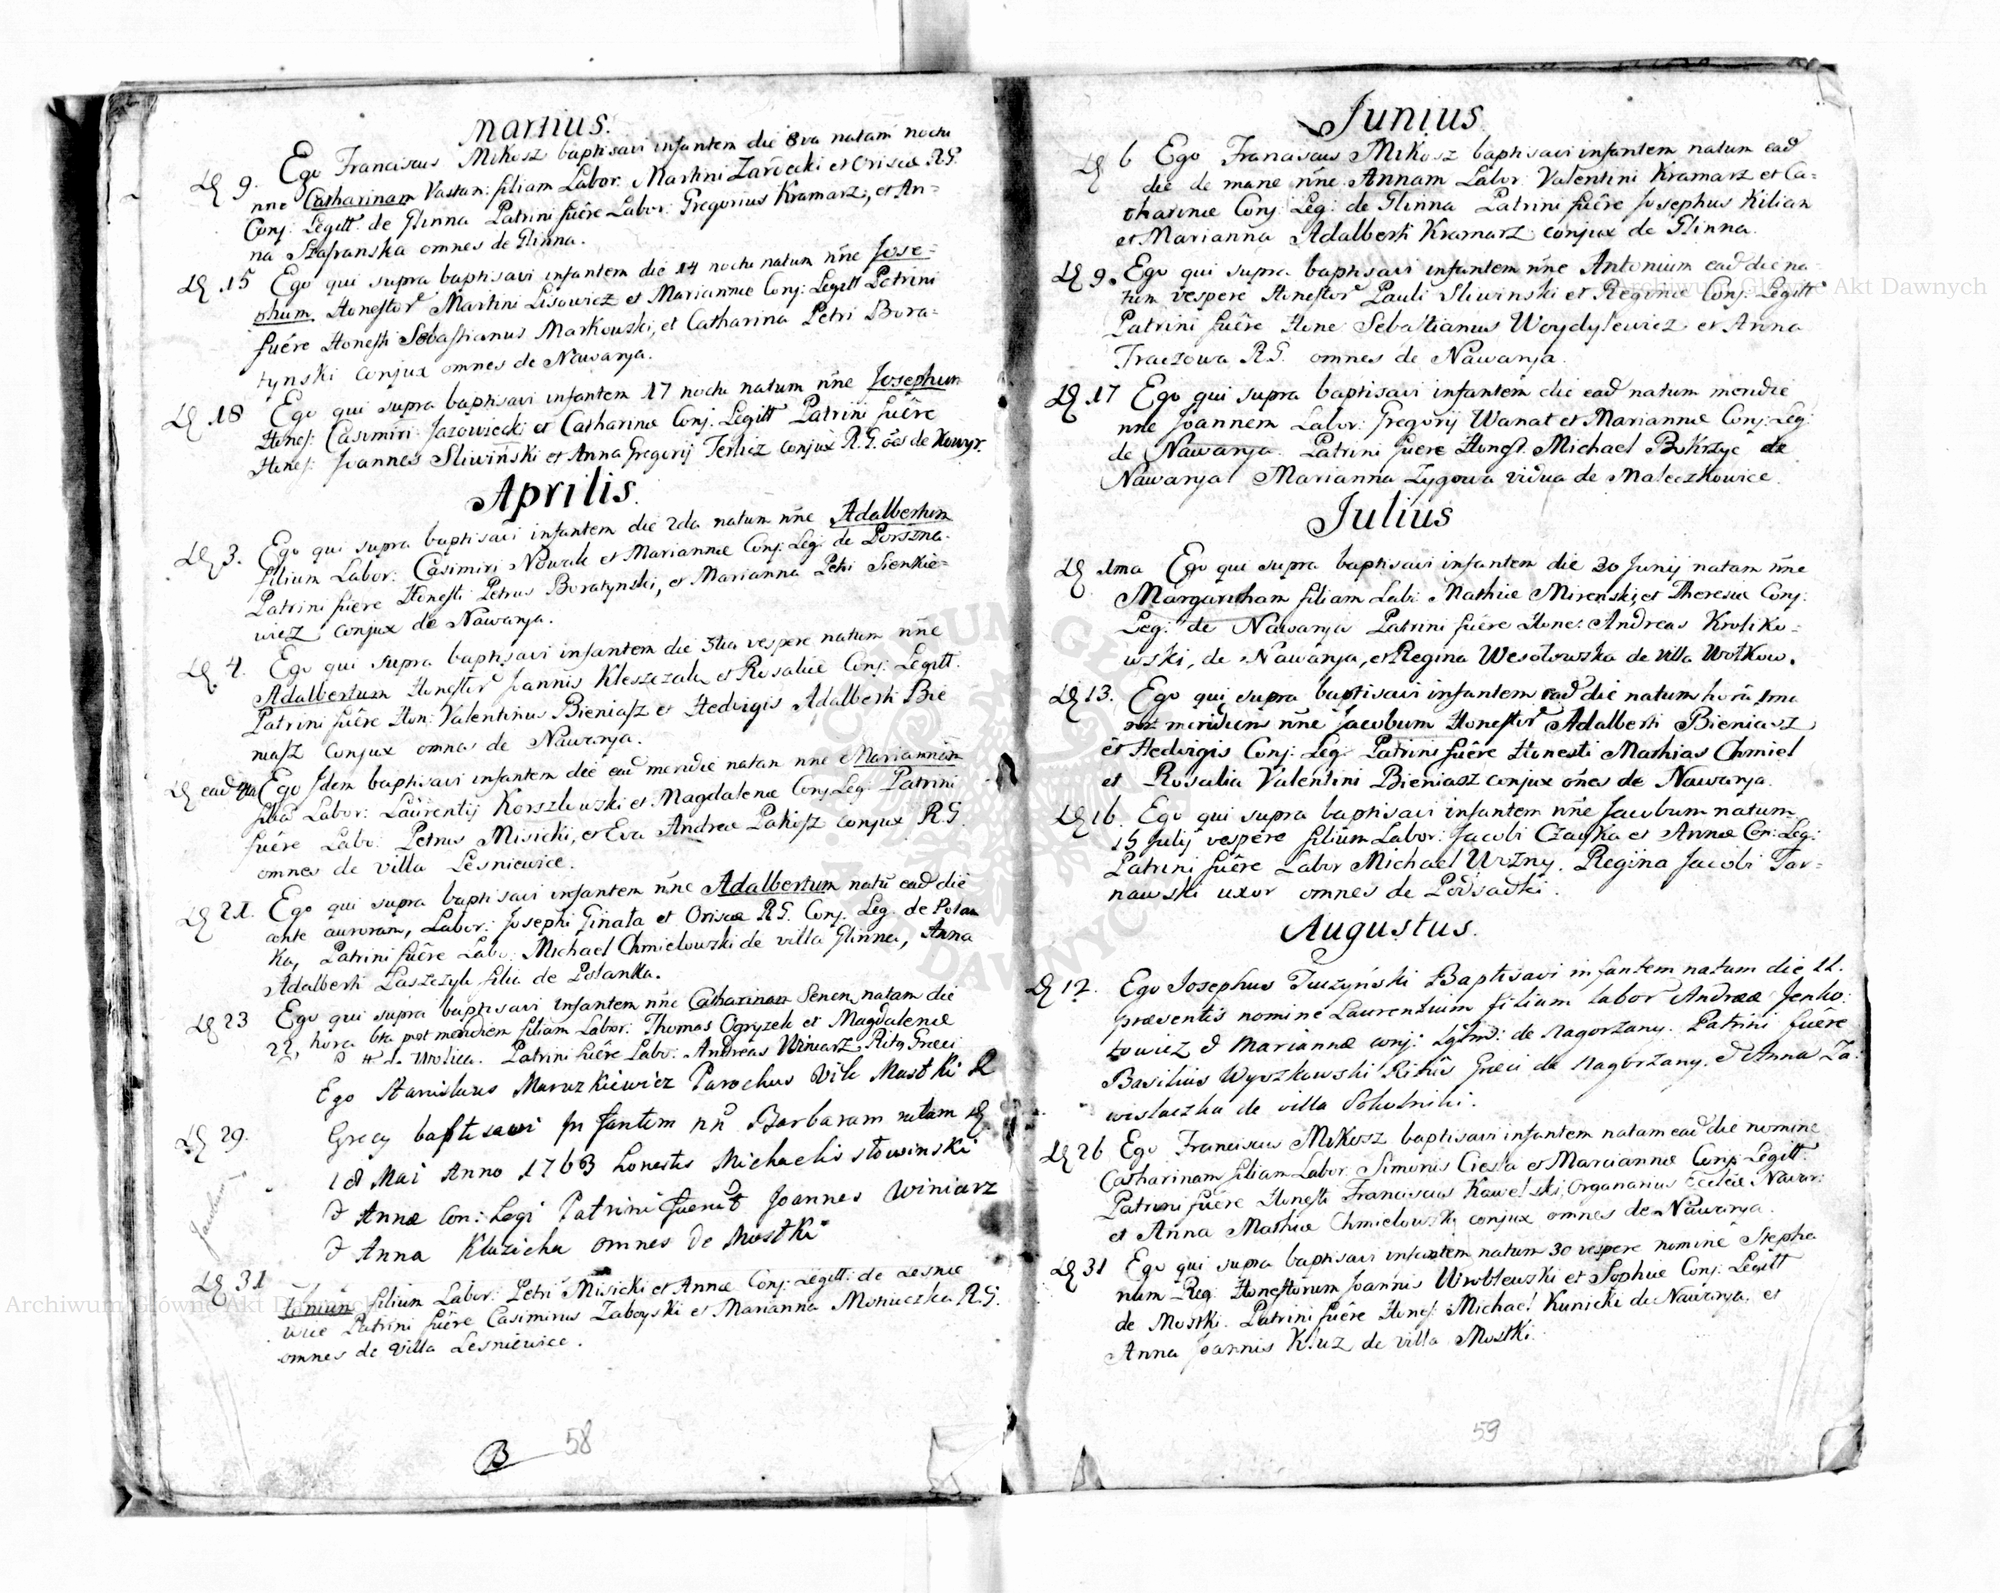 Martius.
Ego Franciscus Mikosz baptisavi infantem die 8va natam noctu
D 9. nne Catharinam Vastan: filiam Labor: Martini Zardecki et Orisiae R.G.
Conj: Legitt. de Glinna Patrini fuêre Labor: Gregorius Kramarz, et An=
na Szafranska omnes de Glinna.
D 15 Ego qui supra baptisavi infantem die 14 noctu natum nne Jose=
phum Honestor Martini Lisowicz et Mariannae Conj: Legitt Patrini
fuêre Honesti Sebastianus Markowski, et Catharina Petri Bora=
tynski conjux omnes de Nawarya.
D 18 Ego qui supra baptisavi infantem 17 noctu natum nne Josephum
Honest: Casimiri Jazowiecki et Catharinae Conj: Legitt Patrini fuêre
Honest: Joannes Sliwiński et Anna Gregorij Terlicz conjux R.G. oes de
Aprilis.
D 3. Ego qui supra baptisavi infantem die 2da natum nne Adalbertum
filium Labor: Casimiri Nowak et Mariannae Conj: Leg: de Porszna.
Patrini fuêre Honesti Petrus Boratynski, et Marianna Petri Sienkie=
wicz conjux de Nawarya.
D 4. Ego qui supra baptisavi infantem die 3tia vespere natum nne
Adalbertum Honestor Joannis Kleszczak et Rosaliae Conj: Legitt.
Patrini fuêre Hon: Valentinus Bieniasz et Hedvigis Adalberti Bie
niasz conjux omnes de Nawarya.
D ead 4ta Ego Idem baptisavi infantem die ead meridie natam nne Mariannam
filia Labor: Laurentij Korszlowski et Magdalenae Conj Leg: Patrini
fuêre Labo: Petrus Misicki, et Eva Andreae Pakosz conjux R.G.
omnes de villa Lesniewice.
D 21. Ego qui supra baptisavi infantem nne Adalbertum natu ead die
ante auroram, Labor: Josephi Ginata et Orisiae R.G. Conj. Leg. de Polan
ka, Patrini fuêre Labo: Michael Chmielowski de villa Glinna, Anna
Adalberti Laszczyk filia de Polanka.
D 23 Ego qui supra baptisavi infantem nne Catharinam Senen natam die
22, hora 6ta post meridiem filiam Labor: Thomas Ogryzek et Magdalenae
Wolica. Patrini fuêre Labo: Andreas Winiarz, Ritus Graeci
Ego Stanislaus Maruszkiewicz Parochus Vile Mostki R
D 29. Grecy baptisavi Infantem nn Barbaram natam
18 Mai Anno 1763 honestis Michaelis Słowinski
& Annae Con: Legi Patrini fuerut Joannes Winiarz
& Anna Kluzicha omnes de Mostki
D 31 filium Labor: Petri Misicki et Annae Conj: Legitt: de Lesnie
wice Patrini fuêre Casimirus Zaboyski et Marianna Moniuczka R.G.
omnes de villa Lesniewice.
B 58
Junius
D 6 Ego Franciscus Mikosz baptisavi infantem natum ead
die de mane nne Annam Labor: Valentini Kramarz et Ca=
tharinae Conj: Leg: de Glinna Patrini fuêre Josephus Kilian
et Marianna Adalberti Kramarz conjux de Glinna.
D 9. Ego qui supra baptisavi infantem nne Antonium ead die na
tum vespere Honestor Pauli Sliwinski et Reginae Conj: Legitt
Patrini fuêre Hone Sebastianus Woydylewicz et Anna
Traczowa R.G. omnes de Nawarya.
D 17 Ego qui supra baptisavi infantem die ead natum meridie
nne Joannem Labor: Gregorij Wanat et Mariannae Conj: Leg:
de Nawarya. Patrini fuere Honest. Michael Pokrzyc de
Nawarya Marianna Zygowa vidua de Maleczkowice.
Julius
D 1ma Ego qui supra baptisavi infantem die 30 Junij natam nne
Margaritham filiam Labo: Mathiae Mirenski, et Theresiae Conj:
Leg: de Nawarya Patrini fuêre Hones: Andreas Kroliko=
wski, de Nawarya, et Regina Wesołowska de villa Wołkow.
D 13. Ego qui supra baptisavi infantem ead die natum hora 1ma
post meridiem nne Jacobum Honestor Adalberti Bieniasz
et Hedvigis Conj: Leg: Patrini fuêre Honesti Mathias Chmiel
et Rosalia Valentini Bieniasz conjux ones de Nawarya.
D 16. Ego qui supra baptisavi infantem nne Jacobum natum
15 Julij vespere filium Labor: Jacobi Czayka et Annae Con: Leg:
Patrini fuêre Labor Michael Wozny, Regina Jacobi Tar=
nawski uxor omnes de Podsadki.
Augustus.
D 12. Ego Josephus Tuczyński Baptisavi infantem natum die 11.
praesentis nomine Laurentium filium labor Andreae Jenko:
towicz & Mariannae conj: Lgtm: de Nagorzany. Patrini fuêre
Basilius Wyszkowski Ritûs Graeci de Nagórzany. & Anna Za:
wislaczka de villa Sokolniki.
D 26 Ego Franciscus Mikosz baptisavi infantem natam ead die nomine
Catharinam filiam Labor: Simonis Ciesla et Mariannae Conj: Legitt:
Patrini fuêre Honesti Franciscus Kawelski, Organarius Ecclae Navar:
et Anna Mathiae Chmielowski conjux omnes de Nawarya.
D 31 Ego qui supra baptisavi infantem natum 30 vespere nomine Stepha
num Reg: Honestorum Joannis Wroblewski et Sophiae Conj: Legitt
de Mostki. Patrini fuêre Hones: Michael Kunicki de Nawarya. et
Anna Joannis Kluz de villa Mostki.
59
Archiwum Główne Akt Dawnych
Archiwum Główne Akt Dawnych
ARCHIWUM GŁÓWNE AKT DAWNYCH